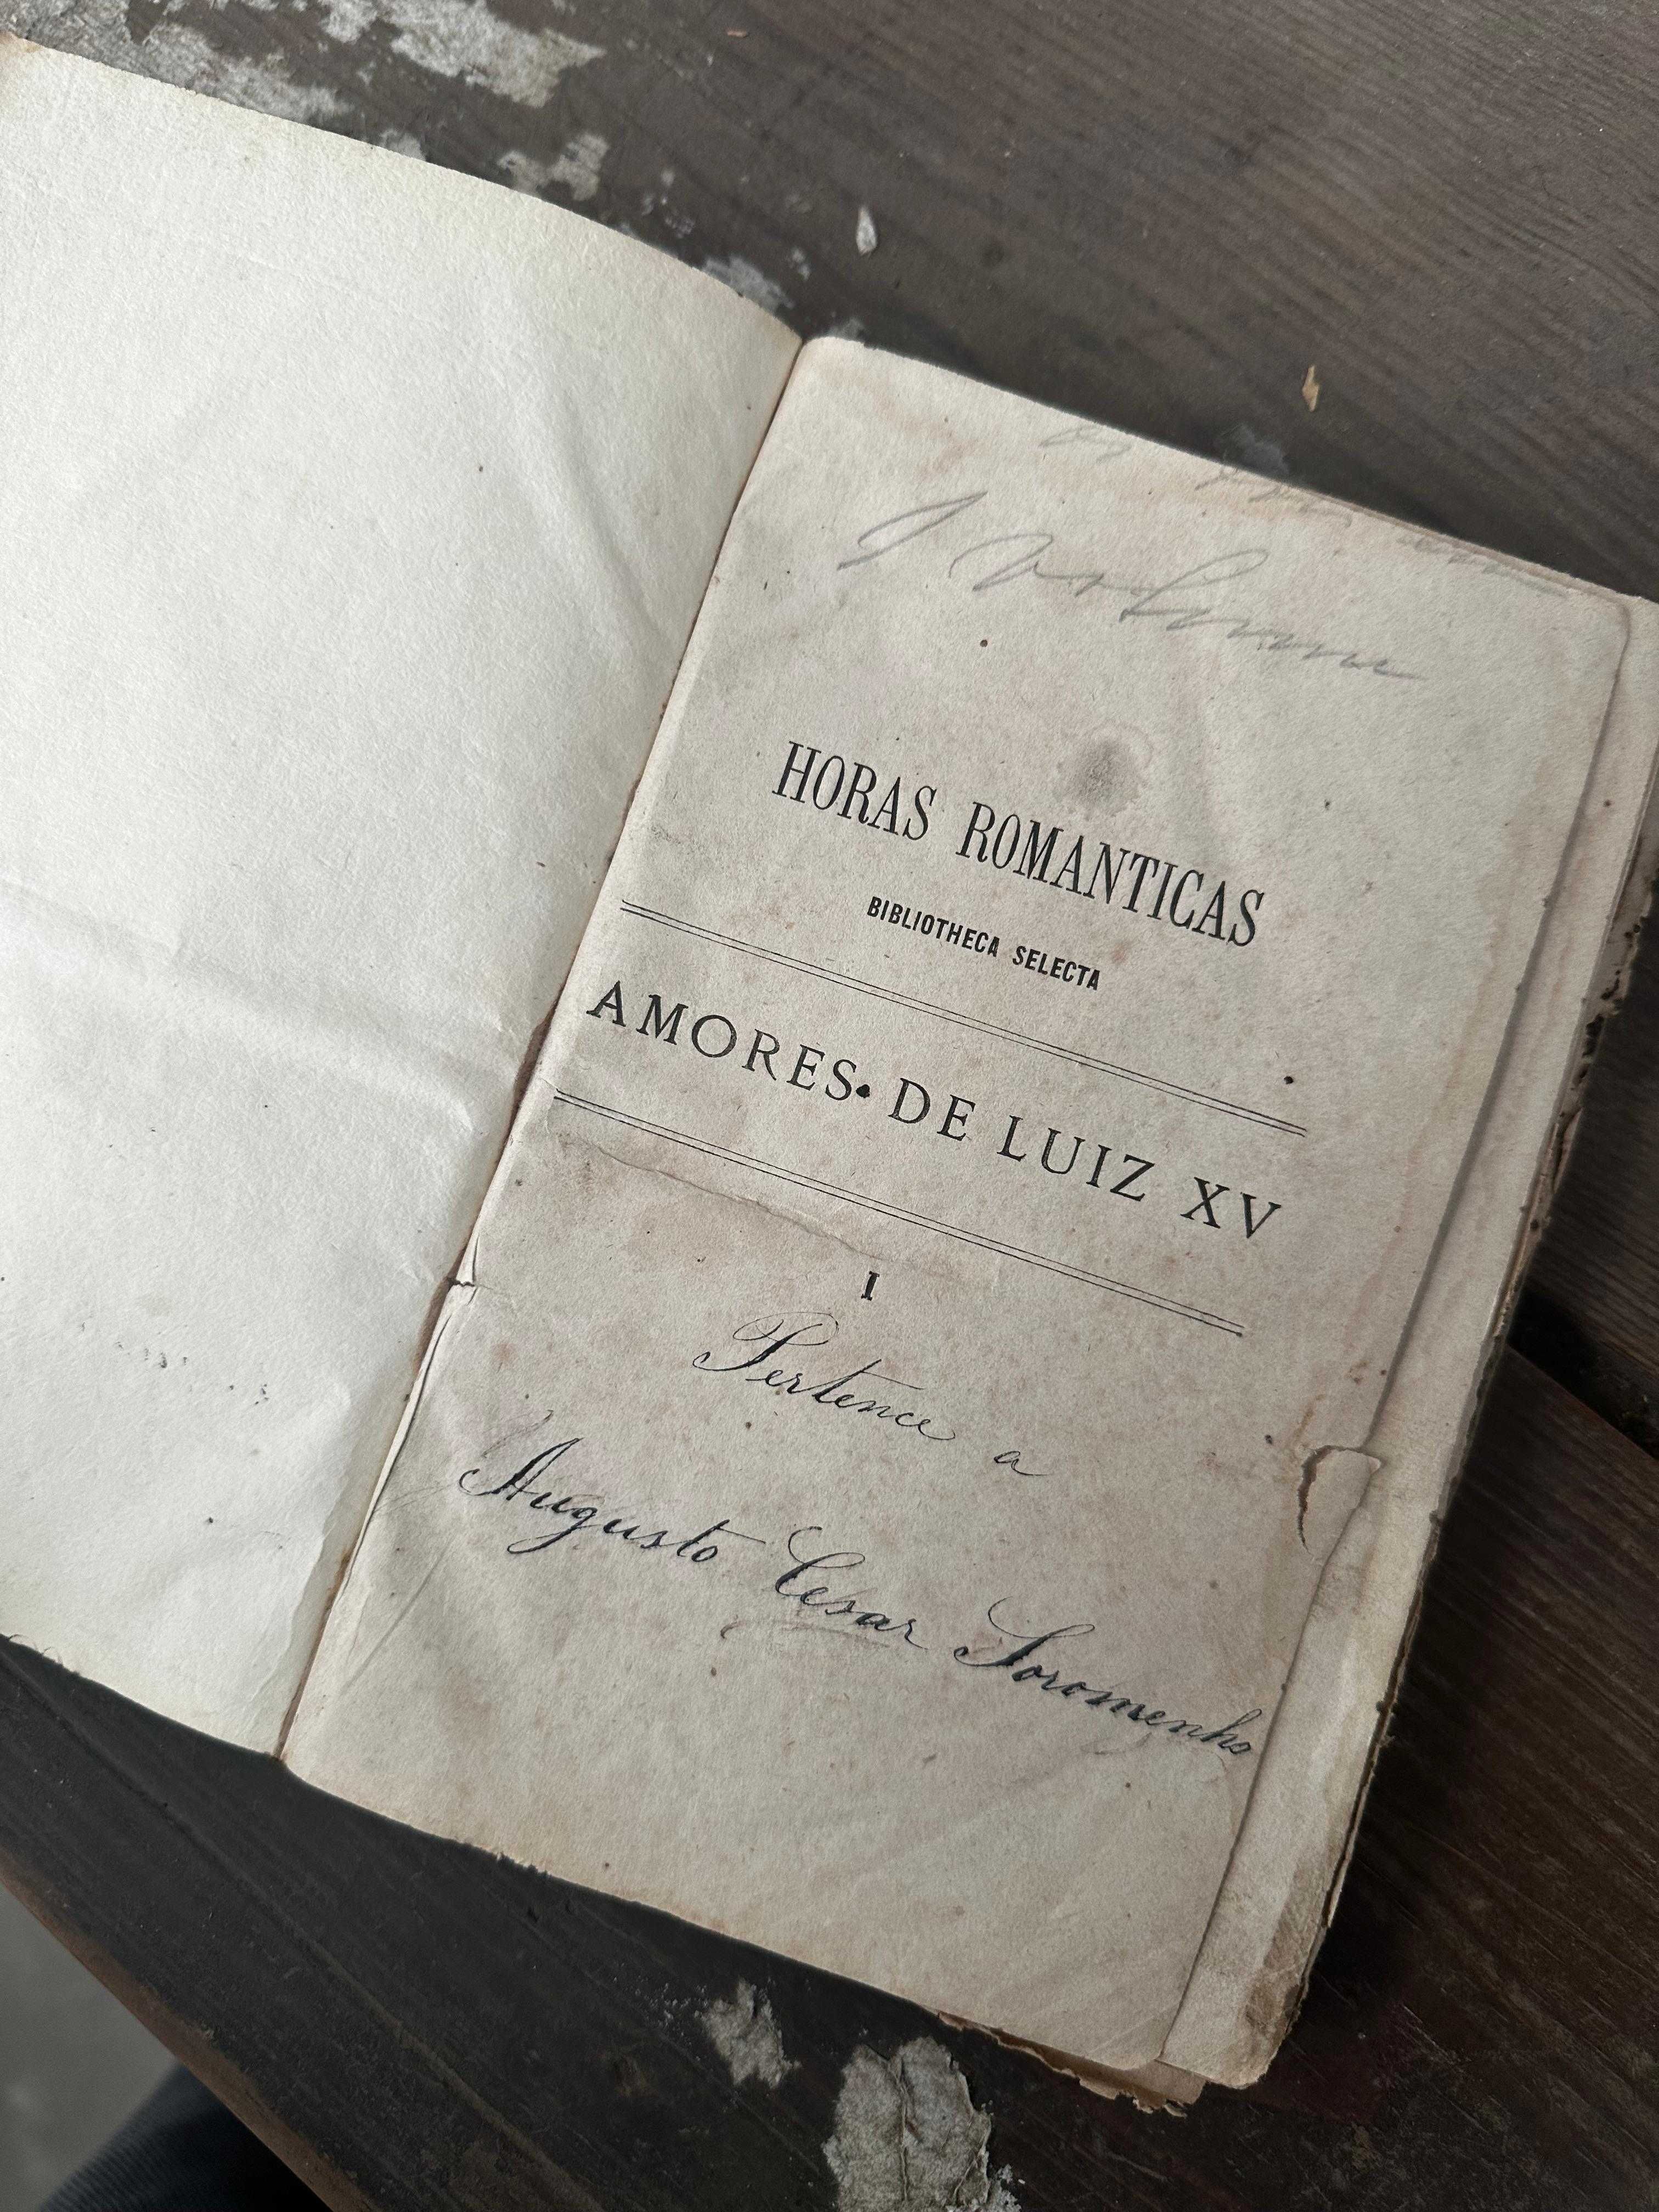 1 volume
HORAS ROMANTICAS
BIBLIOTHECA SELECTA
AMORES DE LUIZ XV
I
Pertence a
Augusto Cesar Soromenho